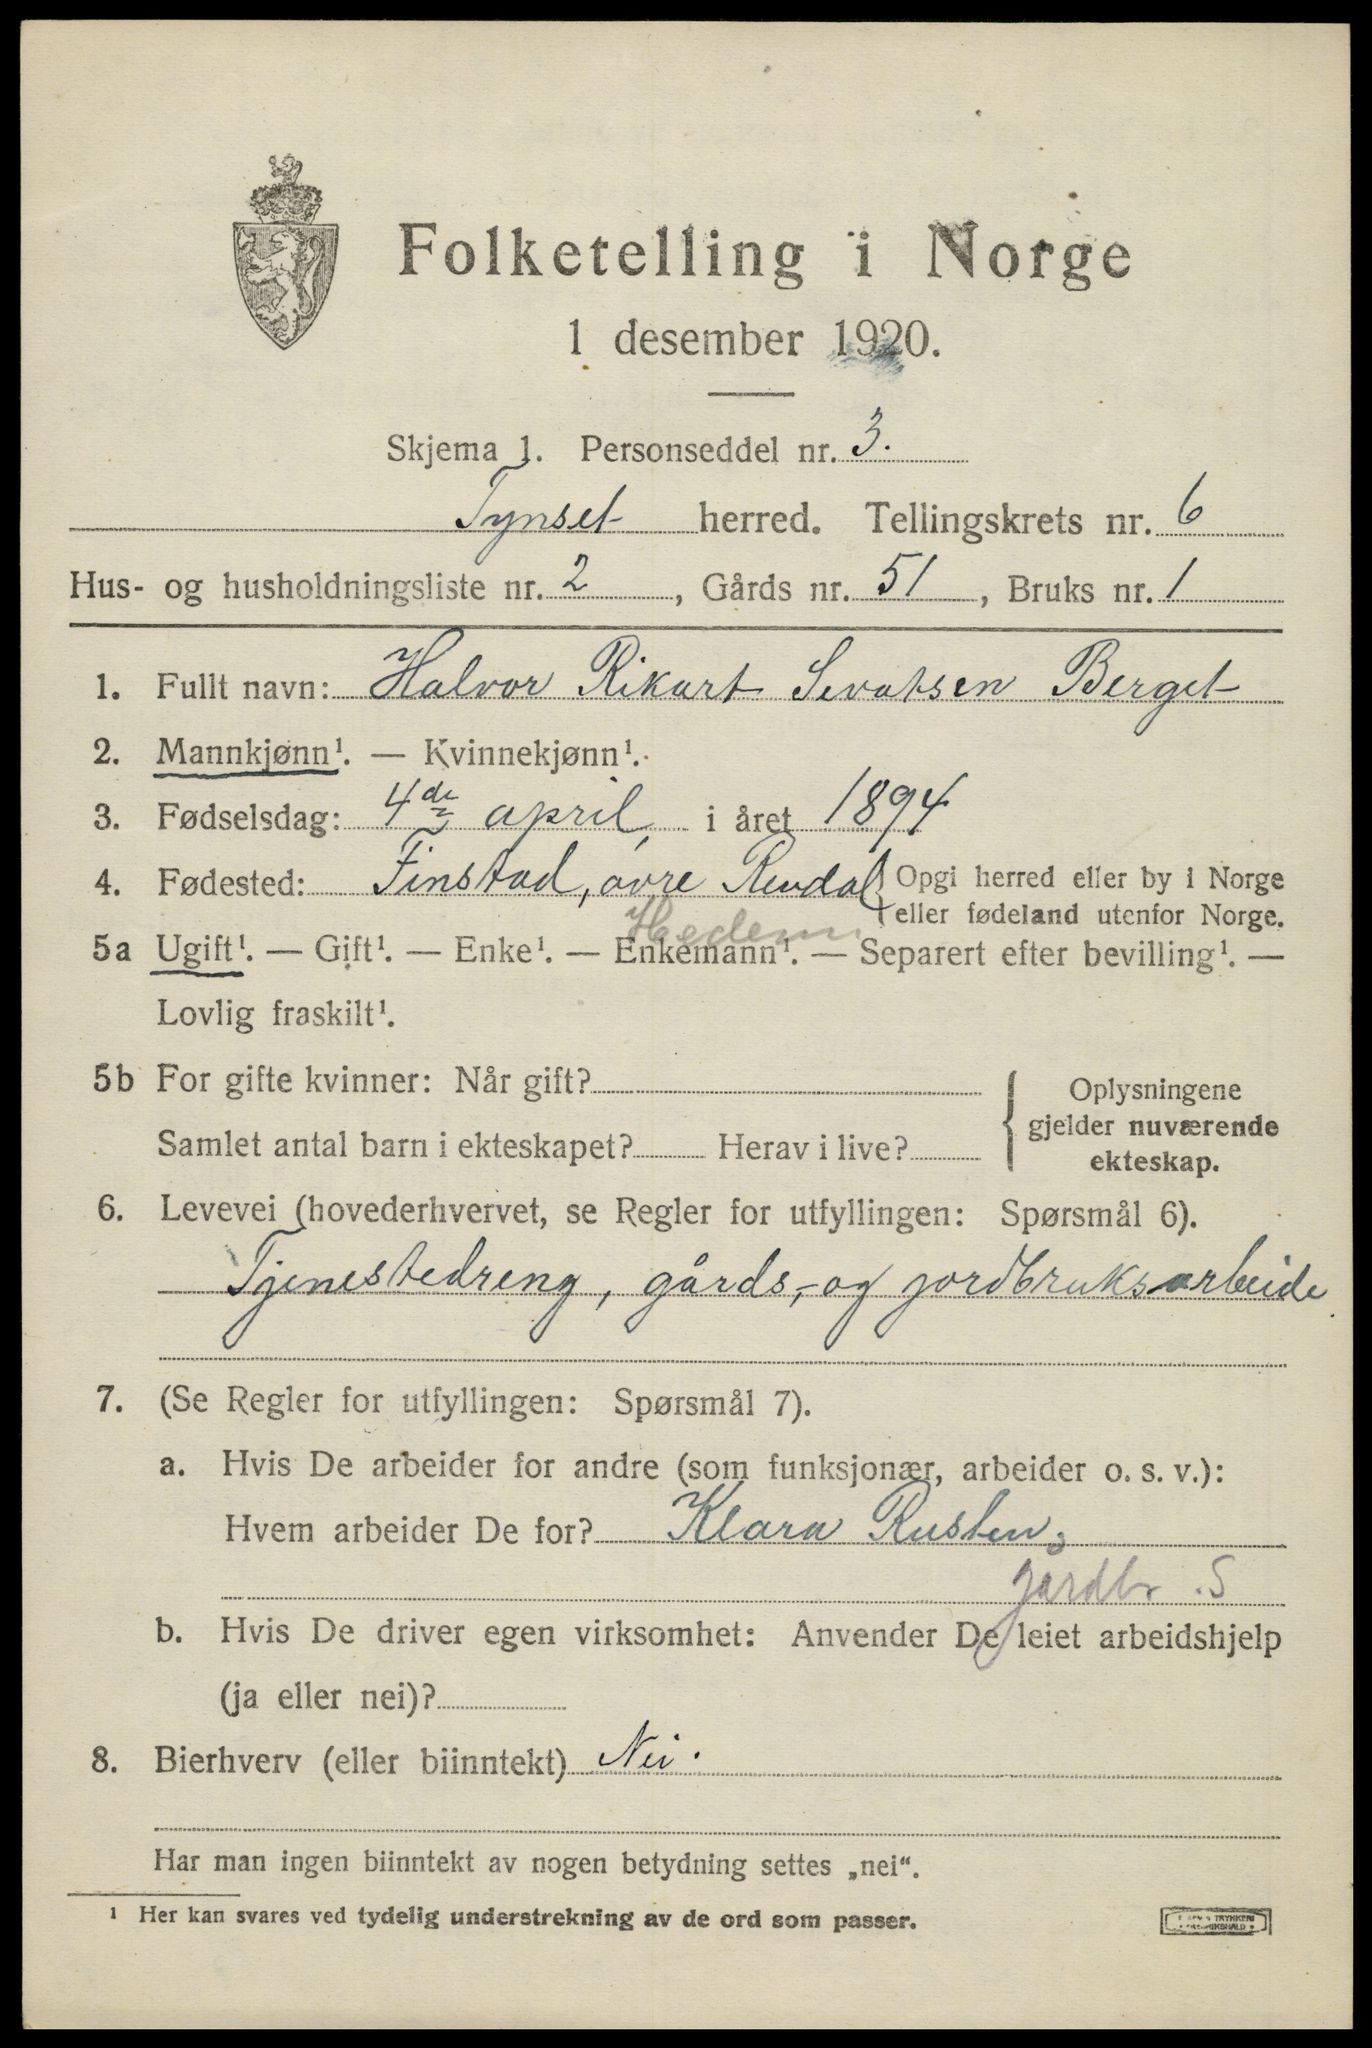 Folketelling i Norge
1 desember 1920.
Skjema 1. Personseddel nr. 3.
Tynset herred. Tellingskrets nr. 6
Hus- og husholdningsliste nr. 2, Gårds nr. 51, Bruks nr. 1
1. Fullt navn: Halvor Rikart Sevatsen Berget
2. Mannkjønn¹. — Kvinnekjønn¹.
3. Fødselsdag: 4de april, i året 1894
4. Fødested: Finstad, øvre Rendal { Opgi herred eller by i Norge
eller fødeland utenfor Norge.
Hedem
5a Ugift¹. — Gift¹. — Enke¹. — Enkemann¹. — Separert efter bevilling¹. —
Lovlig fraskilt¹.
5b For gifte kvinner: Når gift?
Samlet antal barn i ekteskapet? Herav i live?
Oplysningene
gjelder nuværende
ekteskap.
6. Levevei (hovederhvervet, se Regler for utfyllingen: Spørsmål 6).
Tjenestedreng, gårds,- og jordbruksarbeide
7. (Se Regler for utfyllingen: Spørsmål 7).
a. Hvis De arbeider for andre (som funksjonær, arbeider o. s. v.):
Hvem arbeider De for? Klara Rusten,
gårdbr. S
b. Hvis De driver egen virksomhet: Anvender De leiet arbeidshjelp
(ja eller nei)?
8. Bierhverv (eller biinntekt) Nei.
Har man ingen biinntekt av nogen betydning settes „nei“.
¹ Her kan svares ved tydelig understrekning av de ord som passer.